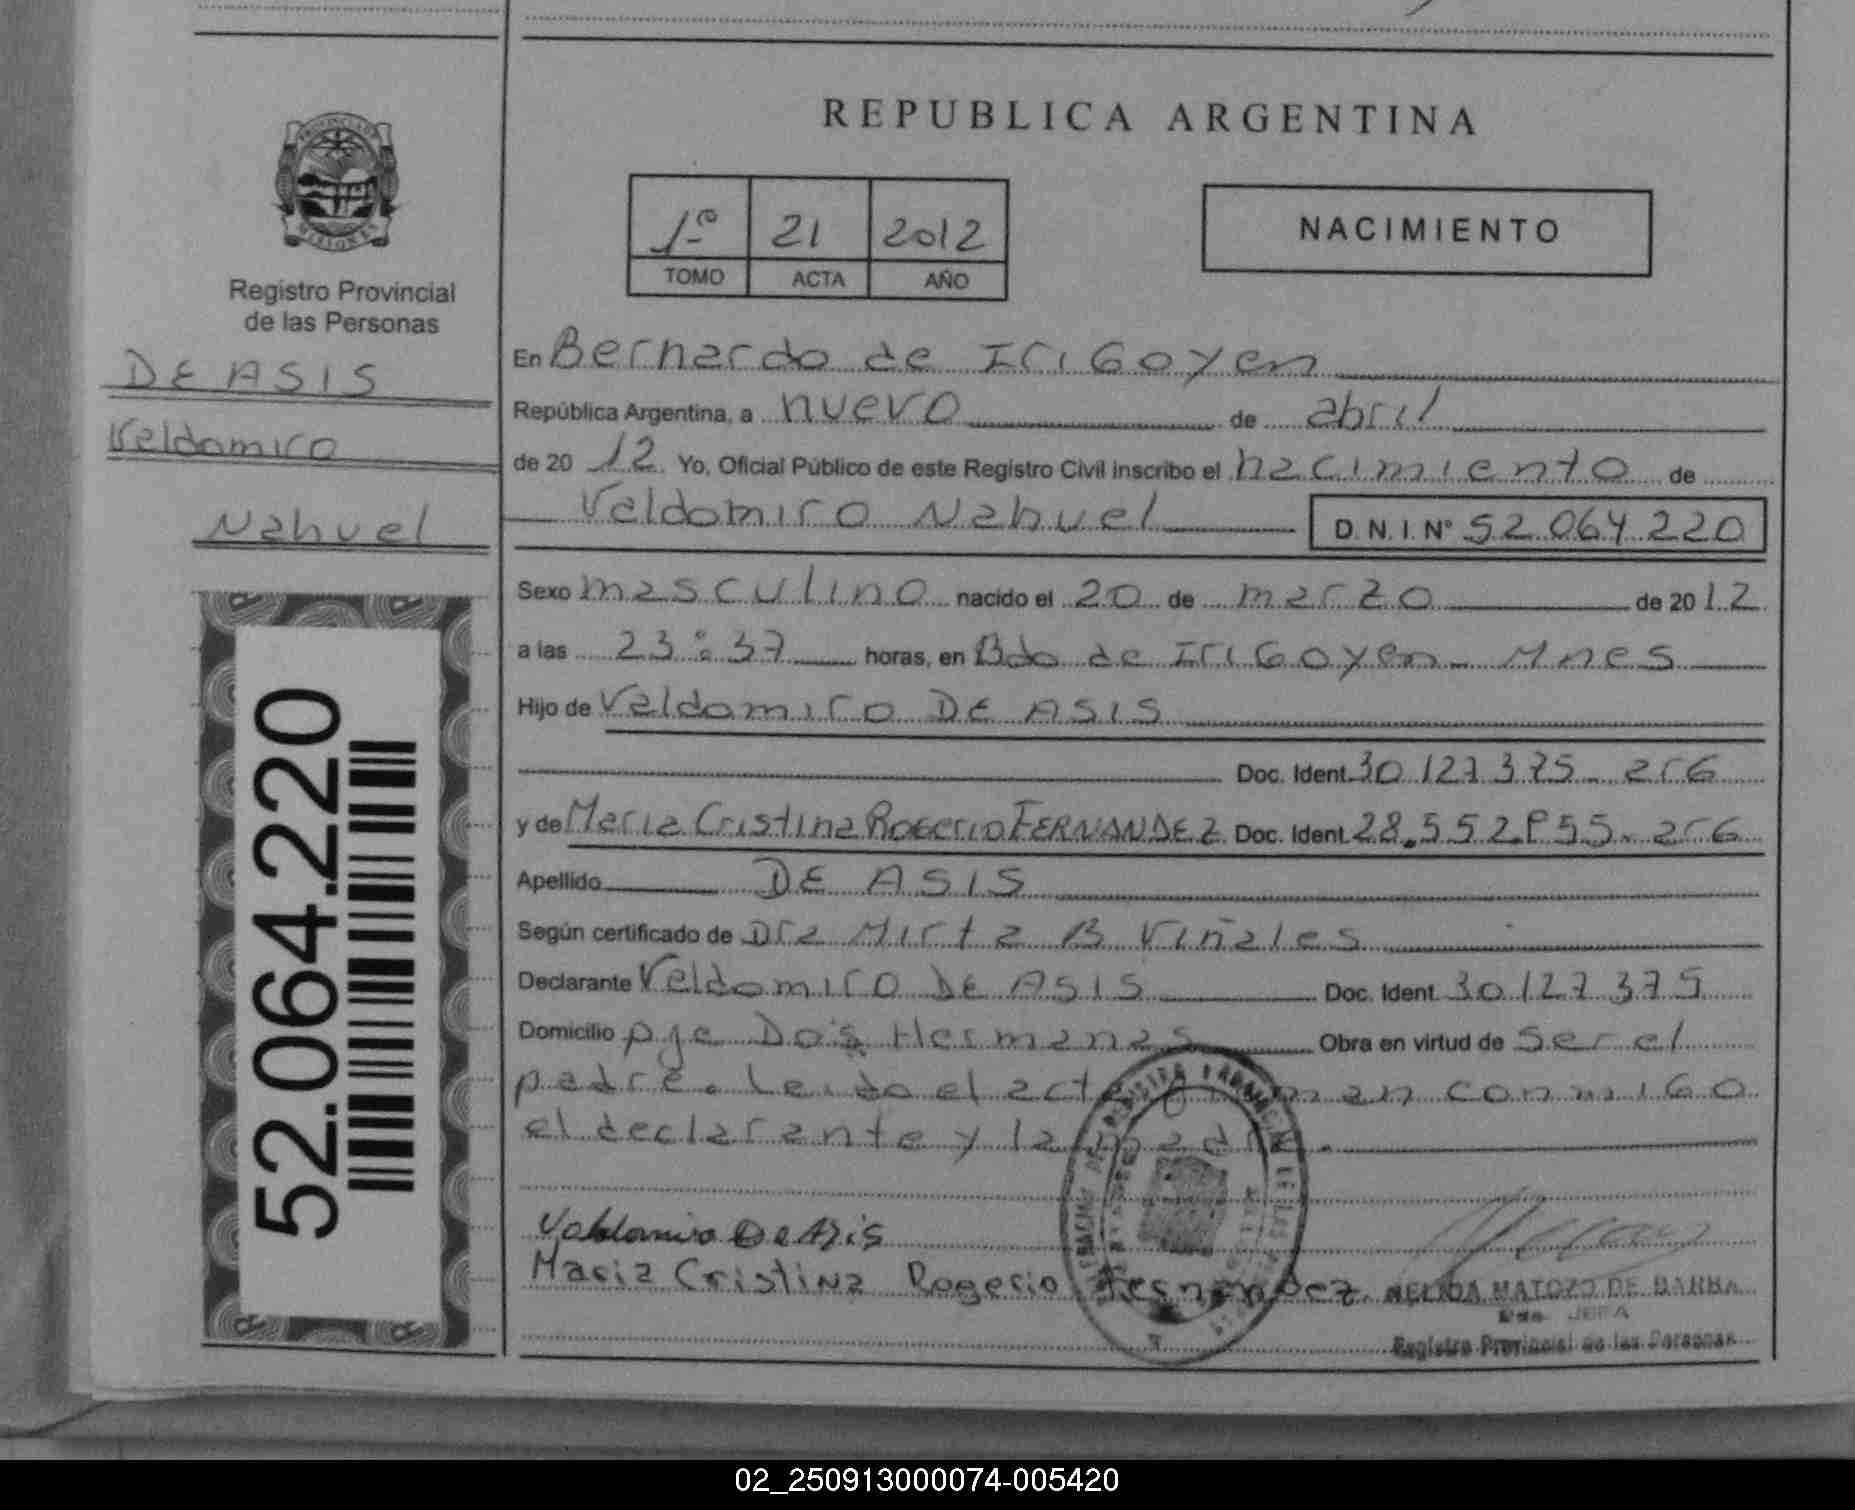 REPUBLICA ARGENTINA
PROVINCIA DE
MISIONES
Registro Provincial
de las Personas
DE ASIS
Valdomiro
Nahuel
52.064.220
1º 21 2012
TOMO ACTA AÑO
NACIMIENTO
En Bernardo de IriGoyen
República Argentina, a nueve de abril
de 2012. Yo, Oficial Público de este Registro Civil inscribo el nacimiento de
Valdomiro Nahuel D.N.I. Nº 52.064.220
Sexo masculino nacido el 20 de marzo de 2012
a las 23:37 horas, en Bdo de IriGoyen - Mnes
Hijo de Valdomiro DE ASIS
Doc. Ident. 30127375 - arG
y de Maria Cristina RoGerio FERNANDEZ Doc. Ident. 28.552.955 - arG
Apellido DE ASIS
Según certificado de Dra Mirta B Viñales
Declarante Valdomiro DE ASIS Doc. Ident. 30127375
Domicilio pje Dos Hermanas Obra en virtud de ser el
padre. Leido el acta firman conmiGo
el declarante y la madre.
Valdomiro De Asis
Maria Cristina Rogerio Fernandez
NELIDA MATOZO DE BARRA
JEFA
Registro Provincial de las Personas
02_250913000074-005420